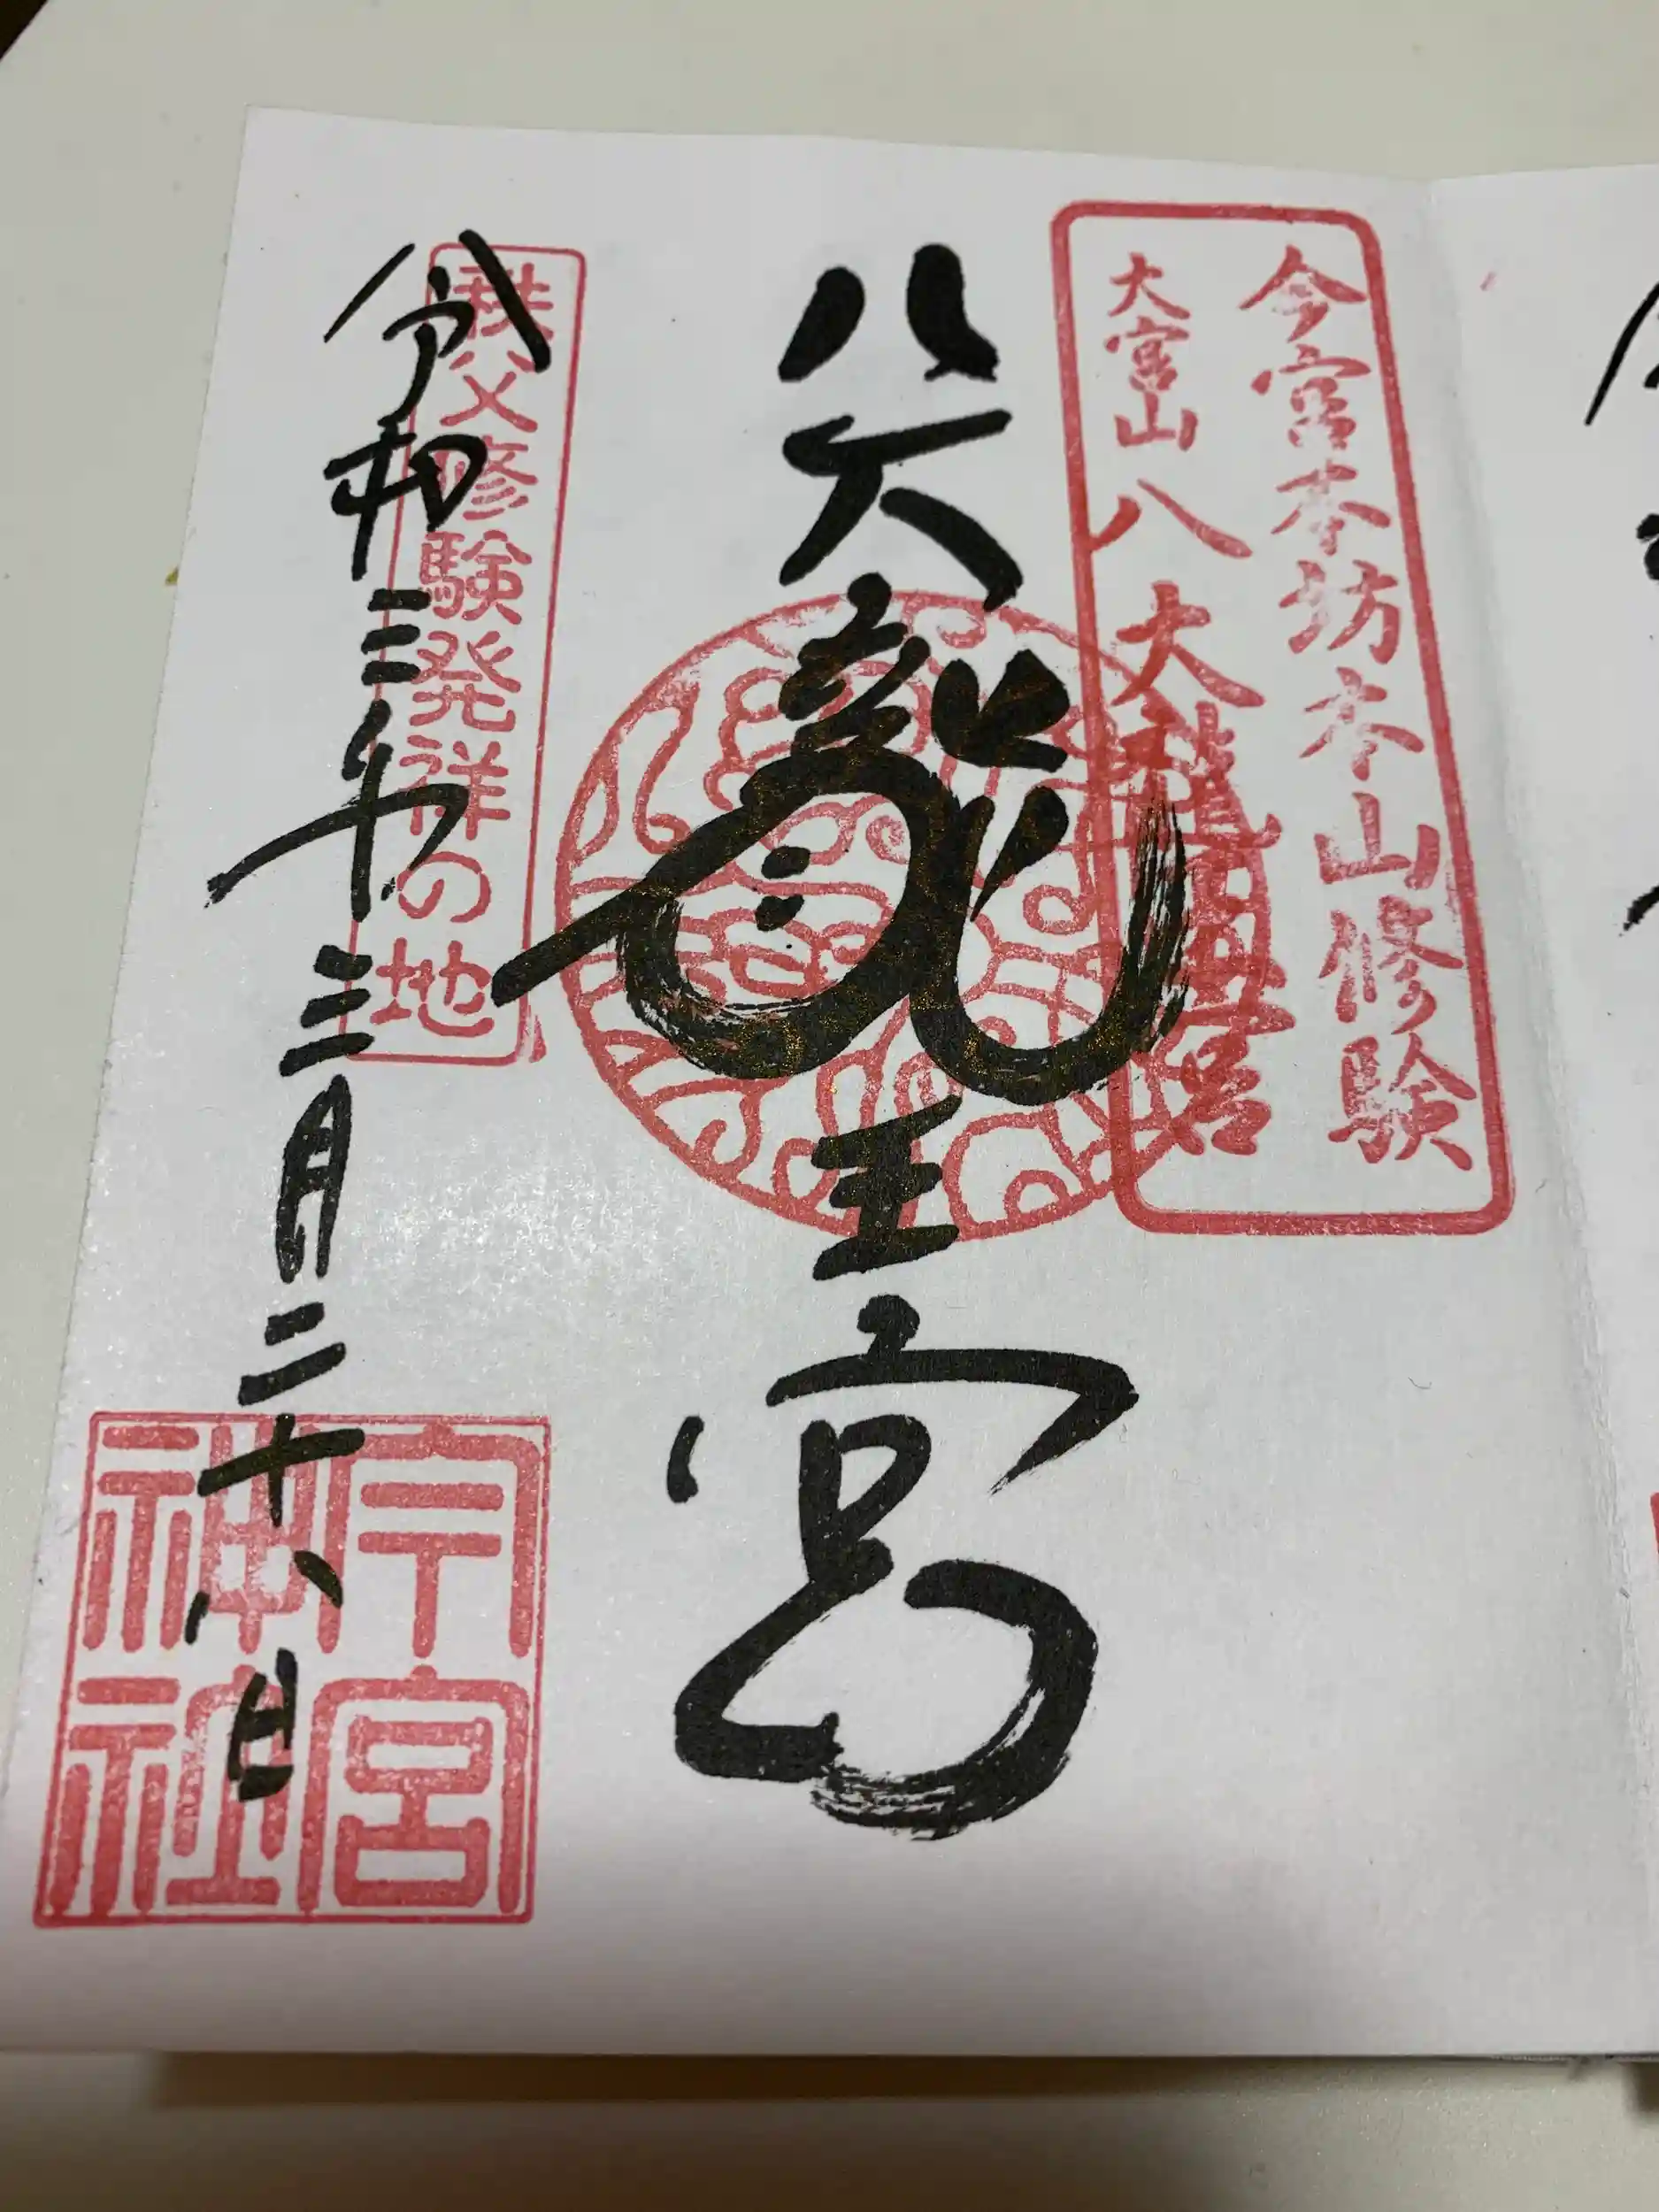 今宮本坊本山修験
大宮山八大龍王宮
八大龍王宮
秩父修験発祥の地
令和三年三月二十八日
今宮
神社